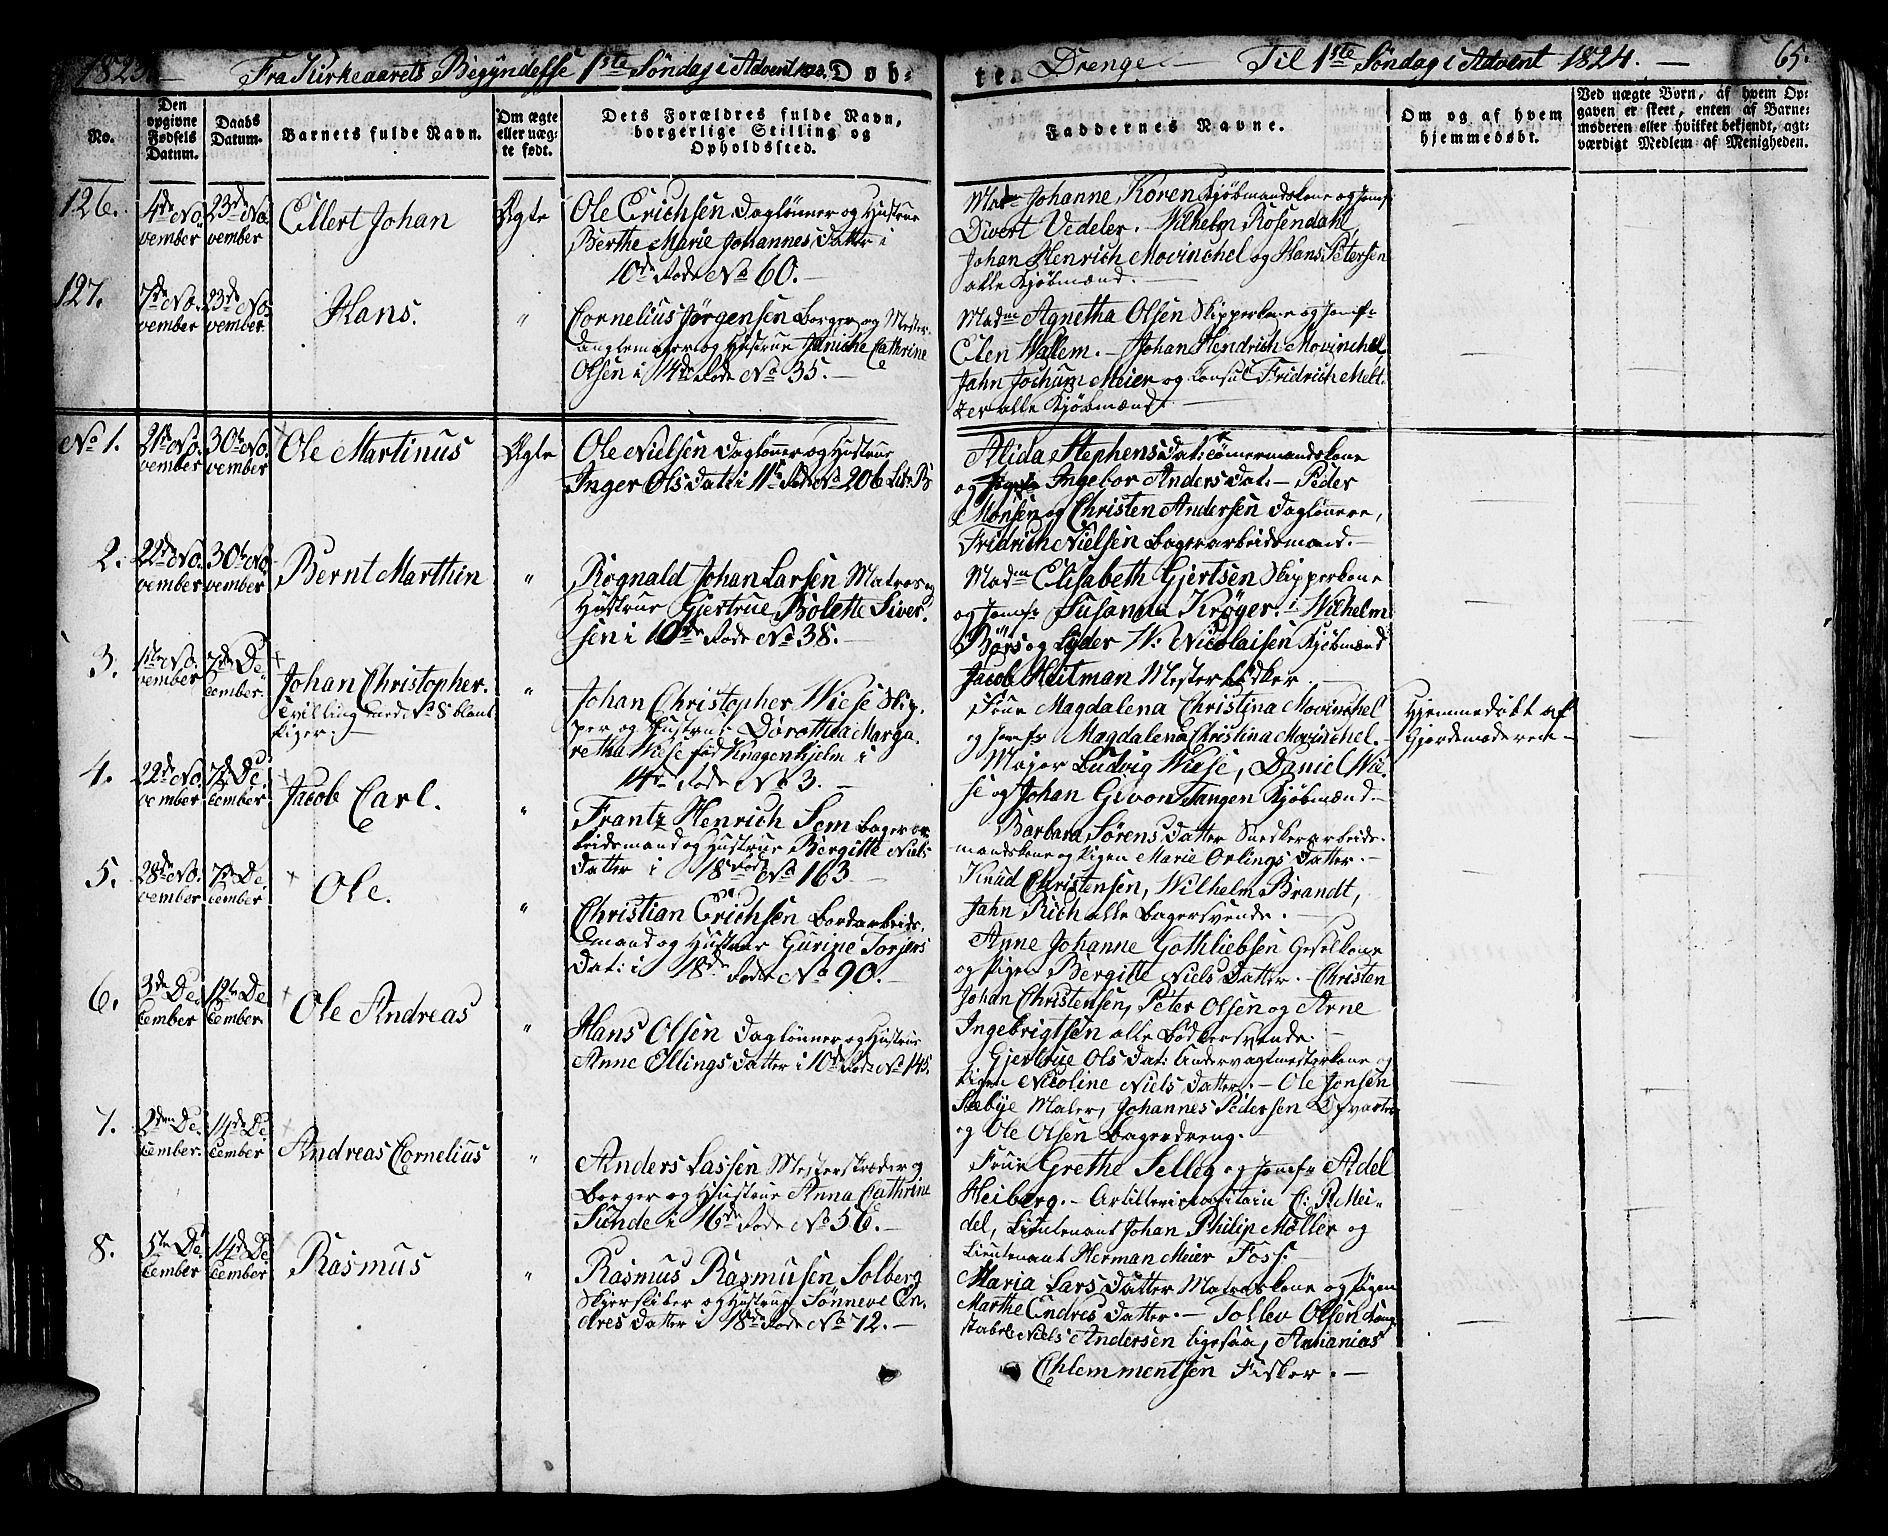 1823. Fra Kirkeaarets Begyndelse 1ste Søndag i Advent 1823. Døb-
te Drenge Til 1ste Søndag i Advent 1824. 65.
No.
Den opgivne Fødsels Datum.
Daabs Datum.
Barnets fulde Navn.
Om ægte eller uægte født.
Dets Forældres fulde Navn,
borgerlige Stilling og
Opholdssted.
Faddernes Navne.
Om og af hvem
hjemmedøbt.
Ved uægte Børn, af hvem Op-
gaven er skeet, enten af Barne-
moderen eller hvilket bekjendt, agt-
værdigt Medlem af Menigheden.
126.
4de No-
vember
23de No-
vember
Ellert Johan
Ægte
Ole Erichsen Daglønner og Hustrue
Berthe Marie Johannes Datter i
10de Rode No 60.
Madm Johanne Koren Kjøbmandskone og Jomfr
Divert Vedeler. Wilhelm Rosendahl,
Johan Henrich Movinchel og Hans Petersen
alle Kjøbmænd.
127.
7de No-
vember
23de No-
vember
Hans.
"
Cornelius Jørgensen Borger og Mester
og Hustrue Cathrine
Olsen i 14de Rode No 35.
Madm Agnetha Olsen Skipperkone og Jomfr
Elen Wallem. Johan Hendrich Movinchel
Jahn Jochum Meier og Consul Fridrich Melt-
zer alle Kjøbmænd.
No 1.
21de No-
vember
30te No-
vember
Ole Martinus
Ægte
Ole Nielsen Dagløner og Hustrue
Inger Ols Dat: i 11te Rode No 206 Litr B
Alida Stephens Dat: Tømermandskone
og Ingebor Anders Dat. Peder
Monsen og Christen Andersen Daglønere,
Fridrich Nielsen Bagerarbeidsmand.
2.
22de No-
vember
30te No-
vember
Bernt Marthin
"
Rognald Johan Larsen Matros og
Hustrue Gjertrue Bolette Siver-
sen i 10de Rode No 38.
Madm Elisabeth Gjertsen Skipperkone
og Jomfr Susanna Krøger. Wilhelm
Børs og Lyder W: Nicolaisen Kjøbmænd
Jacob Heitman Mester Bødker.
3.
1ste No-
vember
7de De-
cember.
Johan Christopher.
Tvilling No 8 blant
Piger.
"
Johan Christopher Wiese Skip-
per og Hustrue Dorothea Marga-
retha Wiese fød Knagenhjelm i
14de Rode No 3.
Frue Magdalena Christina Movinchel
og Jomfr Magdalena Christina Movinchel.
Major Ludvig Wiese, Daniel Wie-
se og Johan Tangen Kjøbmænd.
Hjemmedøbt af
Gjordemoderen
4.
22de No-
vember
7de De-
cember
Jacob Carl.
"
Frantz Henrich Sem Bagerar-
beidsmand og Hustrue Bergitte Niels
Datter i 18de Rode No 163
Barbara Sørens Datter Snedkerarbeids-
mandskone og Pigen Marie Orlings Datter.
Knud Christensen, Wilhelm Brandt,
Jahn Rich alle Bagersvende.
5.
28de No-
vember
7de De-
cember
Ole.
"
Christian Erichsen Bordarbeids-
mand og Hustrue Gurine Torjers
Dat: i 18de Rode No 90.
Anne Johanne Gothliebsen
og Pigen Bergitte Niels Datter. Christen
Johan Christensen, Peter Olsen og Arne
Ingebrigtsen alle Bødkersvende.
6.
3de De-
cember
12te De-
cember
Ole Andreas
"
Hans Olsen Daglønner og Hustrue
Anne Ellings Datter i 10de Rode No 145.
Gjertrue Ols Dat: Undervagtmesterkone og
Pigen Nicoline Niels Datter. Ole Jonsen
Maler, Johannes Pedersen
og Ole Olsen Bagerdreng.
7.
2den De-
cember.
14de De-
cember
Andreas Cornelius
"
Anders Lassen Mesterskræder
Borger og Hustrue Anna Cathrine
Sunde i 16de Rode No 56.
Frue Grethe Selleg og Jomfr Adel
Heiberg. Artilleriecapitain C: R. Mei-
del, Lieutenant Johan Philip Møller og
Lieutenant Herman Meier Foss.
8.
5te De-
cember
14de De-
cember
Rasmus
"
Rasmus Rasmusen Solberg
og Hustrue Sønneve En-
dres Datter i 18de Rode No 72.
Maria Lars Datter Matroskone og Pigen
Marthe Endres Datter. Tollev Olsen
Niels Andersen ligesaa, Annanias
Chlemmentsen Fisker.